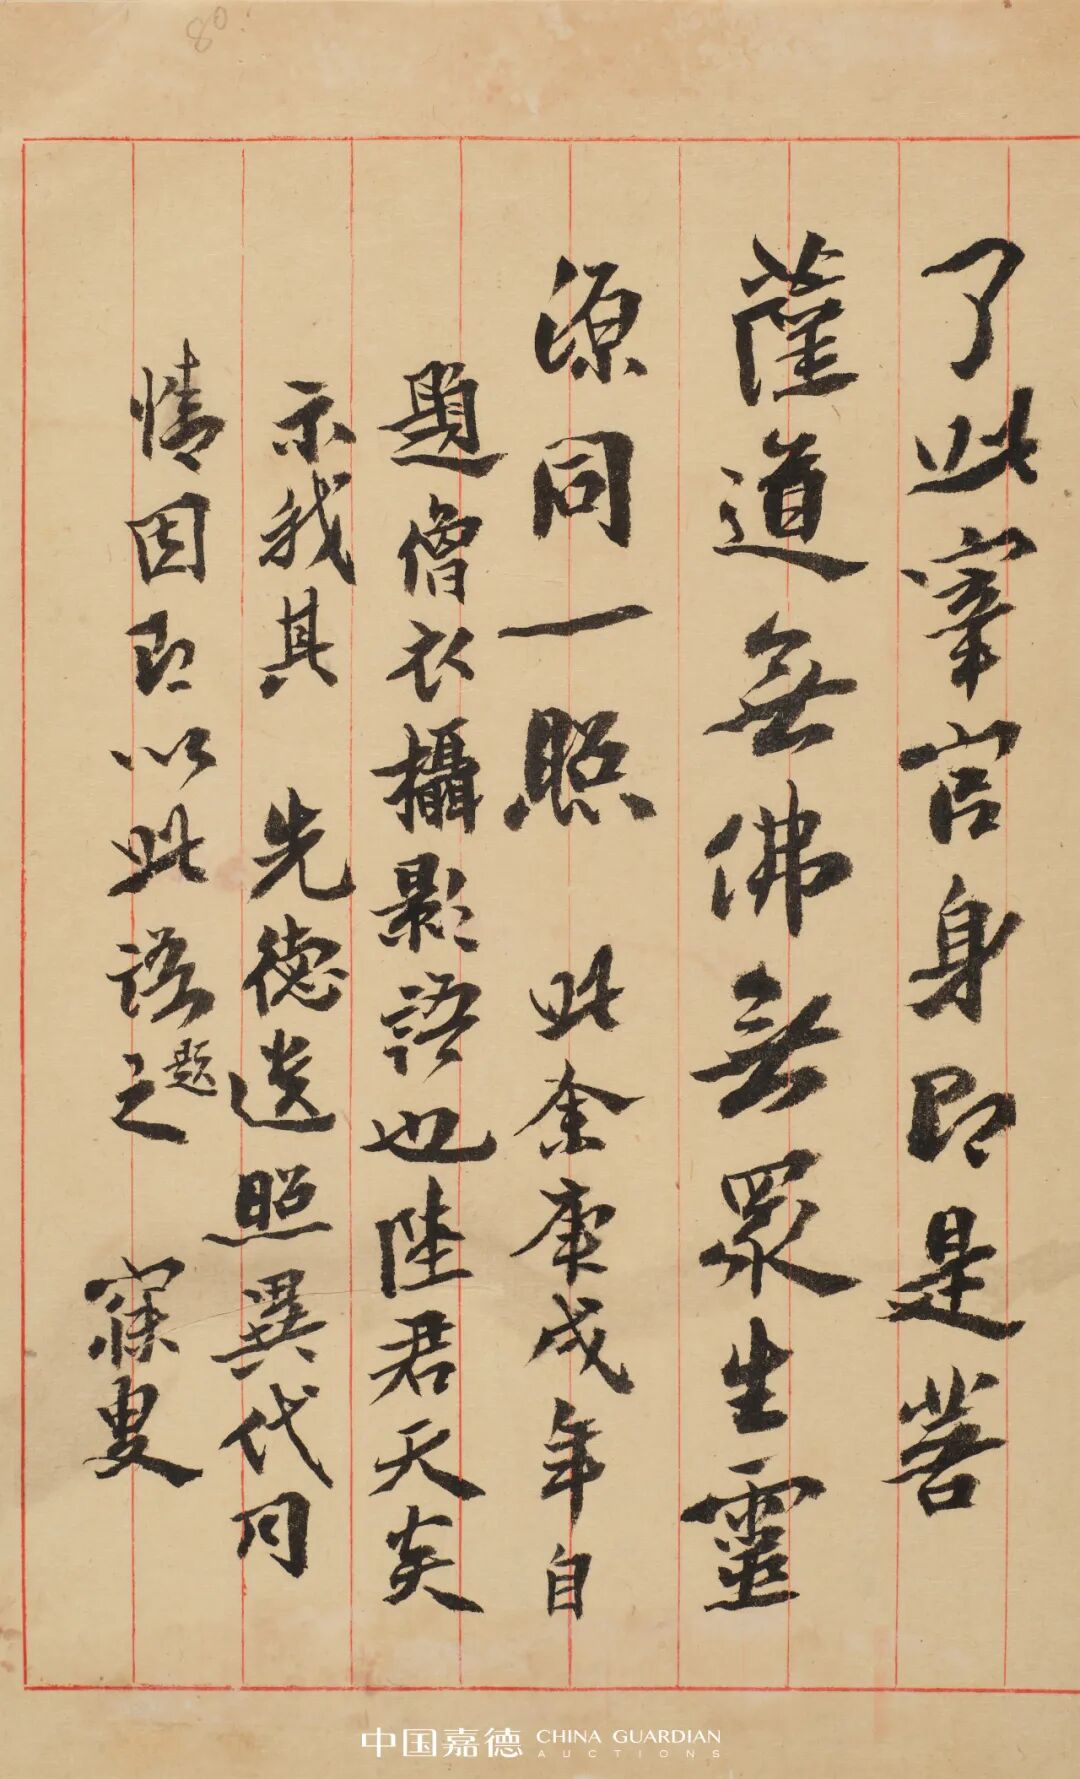 了此宰官身即是菩
薩道無佛無眾生靈
源同一照　此余庚戌年自
題僧衣攝影語也陸君天炎
示我其　先德遺照異代同
情因即以此語題之　寐叟
80
中国嘉德 CHINA GUARDIAN
AUCTIONS